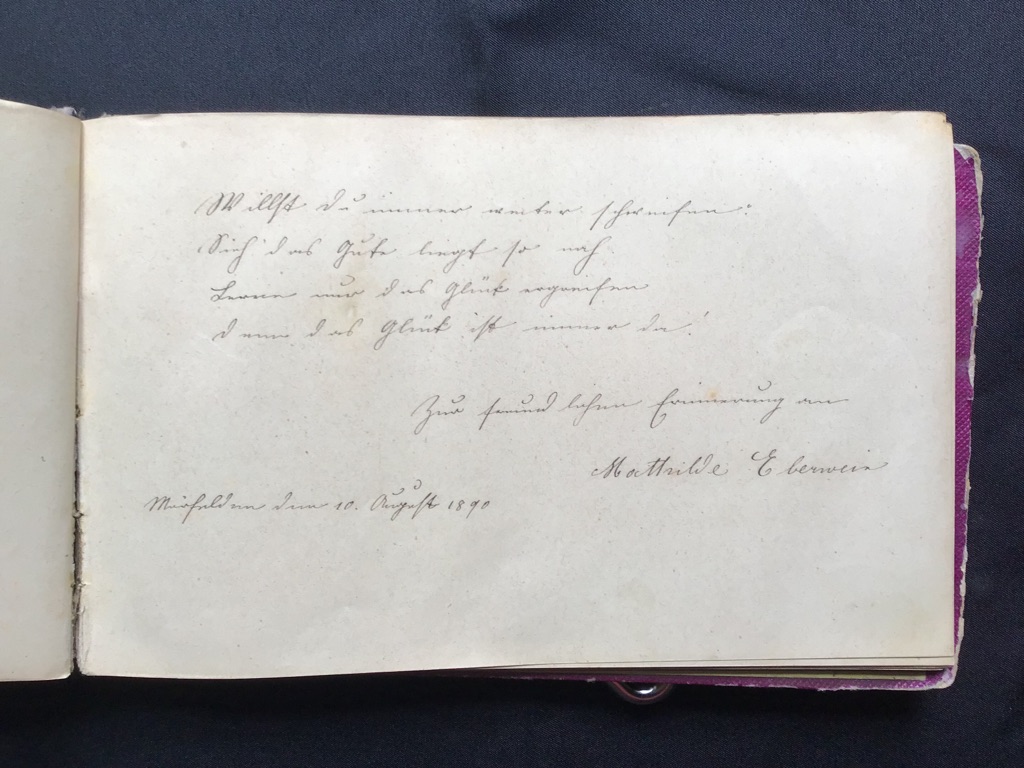 Willst du immer weiter schweifen?
Sieh das Gute liegt so nah
Lerne nur das Glück ergreifen
denn das Glück ist immer da!
Zur freundlichen Erinnerung an
Mathilde Eberwein
Mörfelden den 10. August 1890